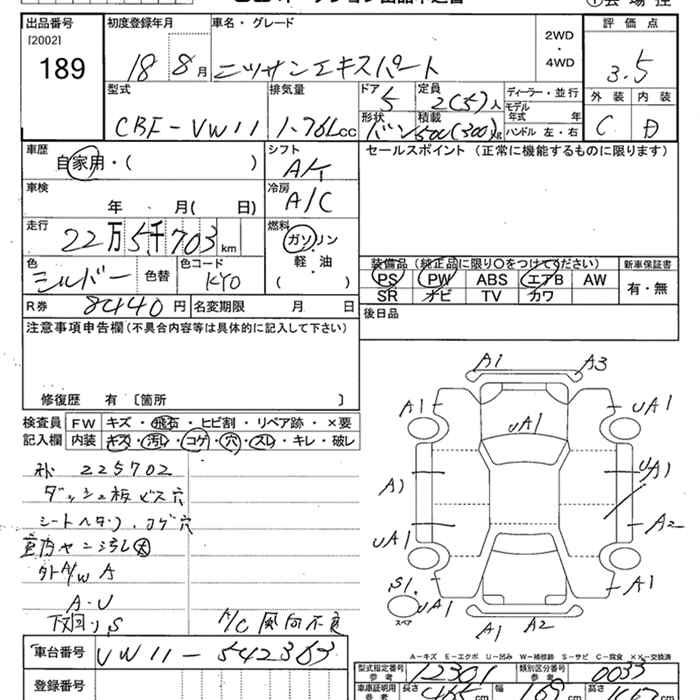 出品番号 初度登録年月 車名・グレード 評価点
[2002]
189 18 8月 ニッサンエキスパート 2WD・4WD 3.5
型式 排気量 ドア 定員 ディーラー・並行 外装 内装
CBF-VW11 1.76L cc 5 2(5)人 モデル年式 年 C D
形状 積載 ハンドル 左・右
バン 500(300)kg
車歴 シフト セールスポイント (正常に機能するものに限ります)
自家用・( ) A/T
車検 冷房
年 月( 日) A/C
走行 燃料
22万5千703km ガソリン
軽・油
( )
色 色替 色コード 装備品 (純正品に限り○をつけてください) 新車保証書
シルバー KY0 PS PW ABS エアB AW 有・無
SR ナビ TV カワ
R券 8440円 名変期限 月 日 後日品
注意事項申告欄(不具合内容等は具体的に記入して下さい)
修復歴 有 〔箇所 〕
検査員 FW キズ・飛石・ヒビ割・リペア跡・×要
記入欄 内装 キズ・汚レ・コゲ・穴・スレ・キレ・破レ
225702
ダッシュ板ビス穴
シートヘタリ、コゲ穴
室内ヤニ汚レ大
外A/W A
A・U
下廻り、S A/C 風向不良
A1 A3
A1 UA1
UA1
A1 UA1
A2
UA1
S1 A1
スペア UA1
A1 A2
車台番号 VW11-542363
A-キズ E-エクボ U-凹み W-補修跡 S-サビ C-腐食 ××-交換済
型式指定番号 12301 類別区分番号 0033
登録番号 車庫証明用 参考 長さ cm 幅 169 cm 高さ cm